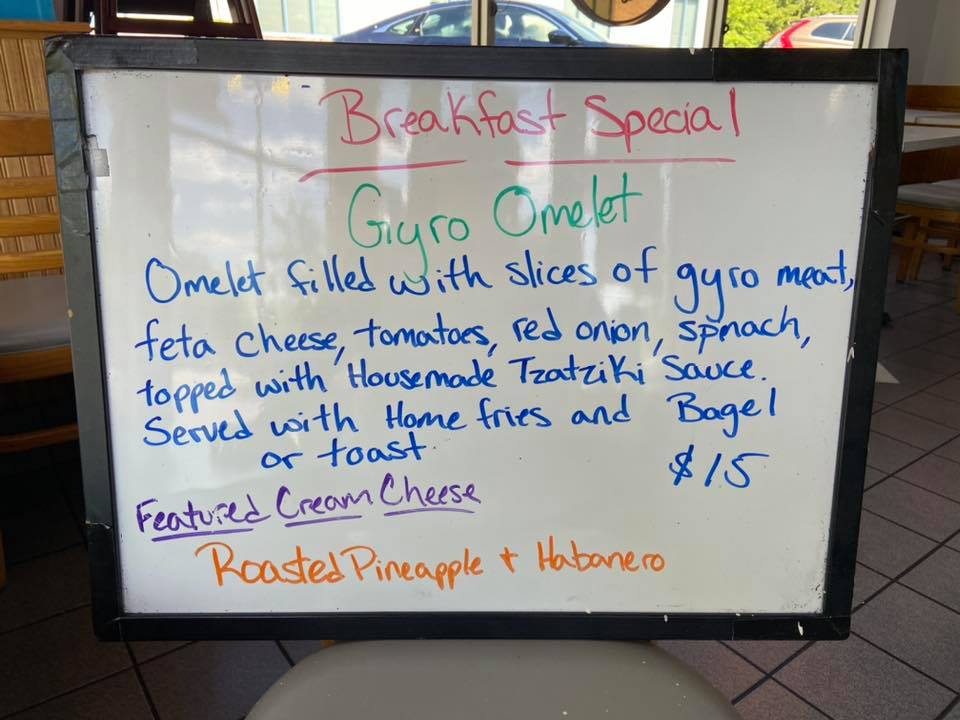 Breakfast Special
Gyro Omelet
Omelet filled with slices of gyro meat,
feta cheese, tomatoes, red onion, spinach,
topped with Housemade Tzatziki Sauce.
Served with Home fries and Bagel
or toast. $15
Featured Cream Cheese
Roasted Pineapple + Habanero